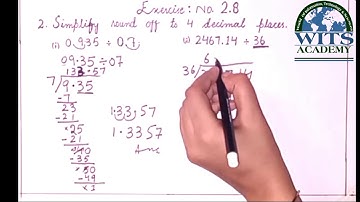 Exercise: No. 2.8
2. Simplify round off to 4 decimal places.
(i) 0.935 ÷ 0.7
(ii) 2467.14 ÷ 36
09.35 ÷ 07
133.57
7/9.35
-7
23
-21
×25
-21
40
-35
×50
-49
×1
1.33,57
1.3357
Ans
6
36/
WITS
ACADEMY